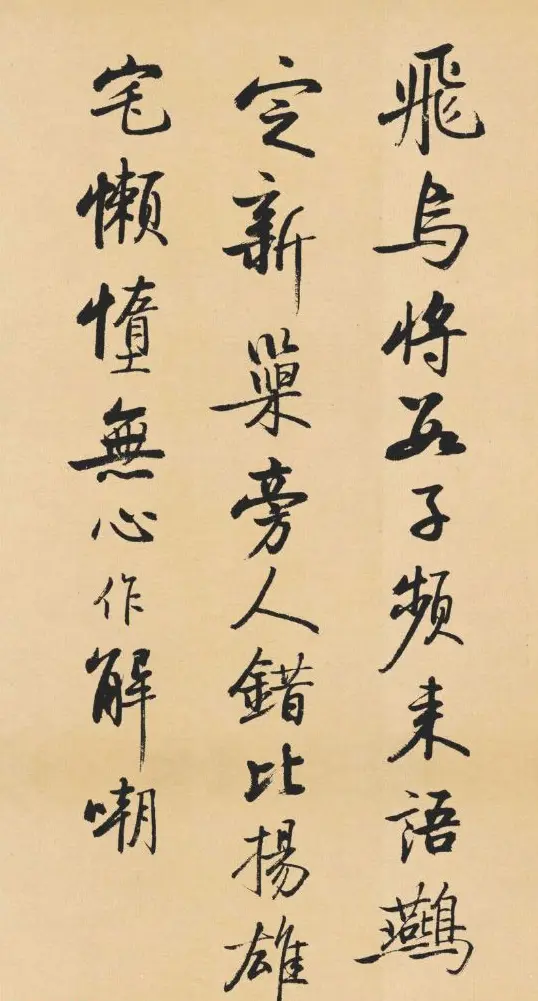 飛烏將數子頻來語鷰
定新巢旁人錯比揚雄
宅懶惰無心作解嘲